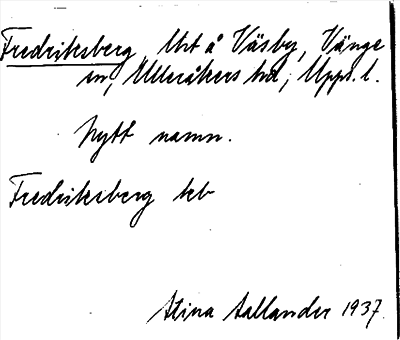 Fredriksberg, Uvt å Väsby, Vänge
sn, Ulleråkers hd, Upps. l.
Nytt namn.
Fredriksberg kb
Stina Sallander 1937.